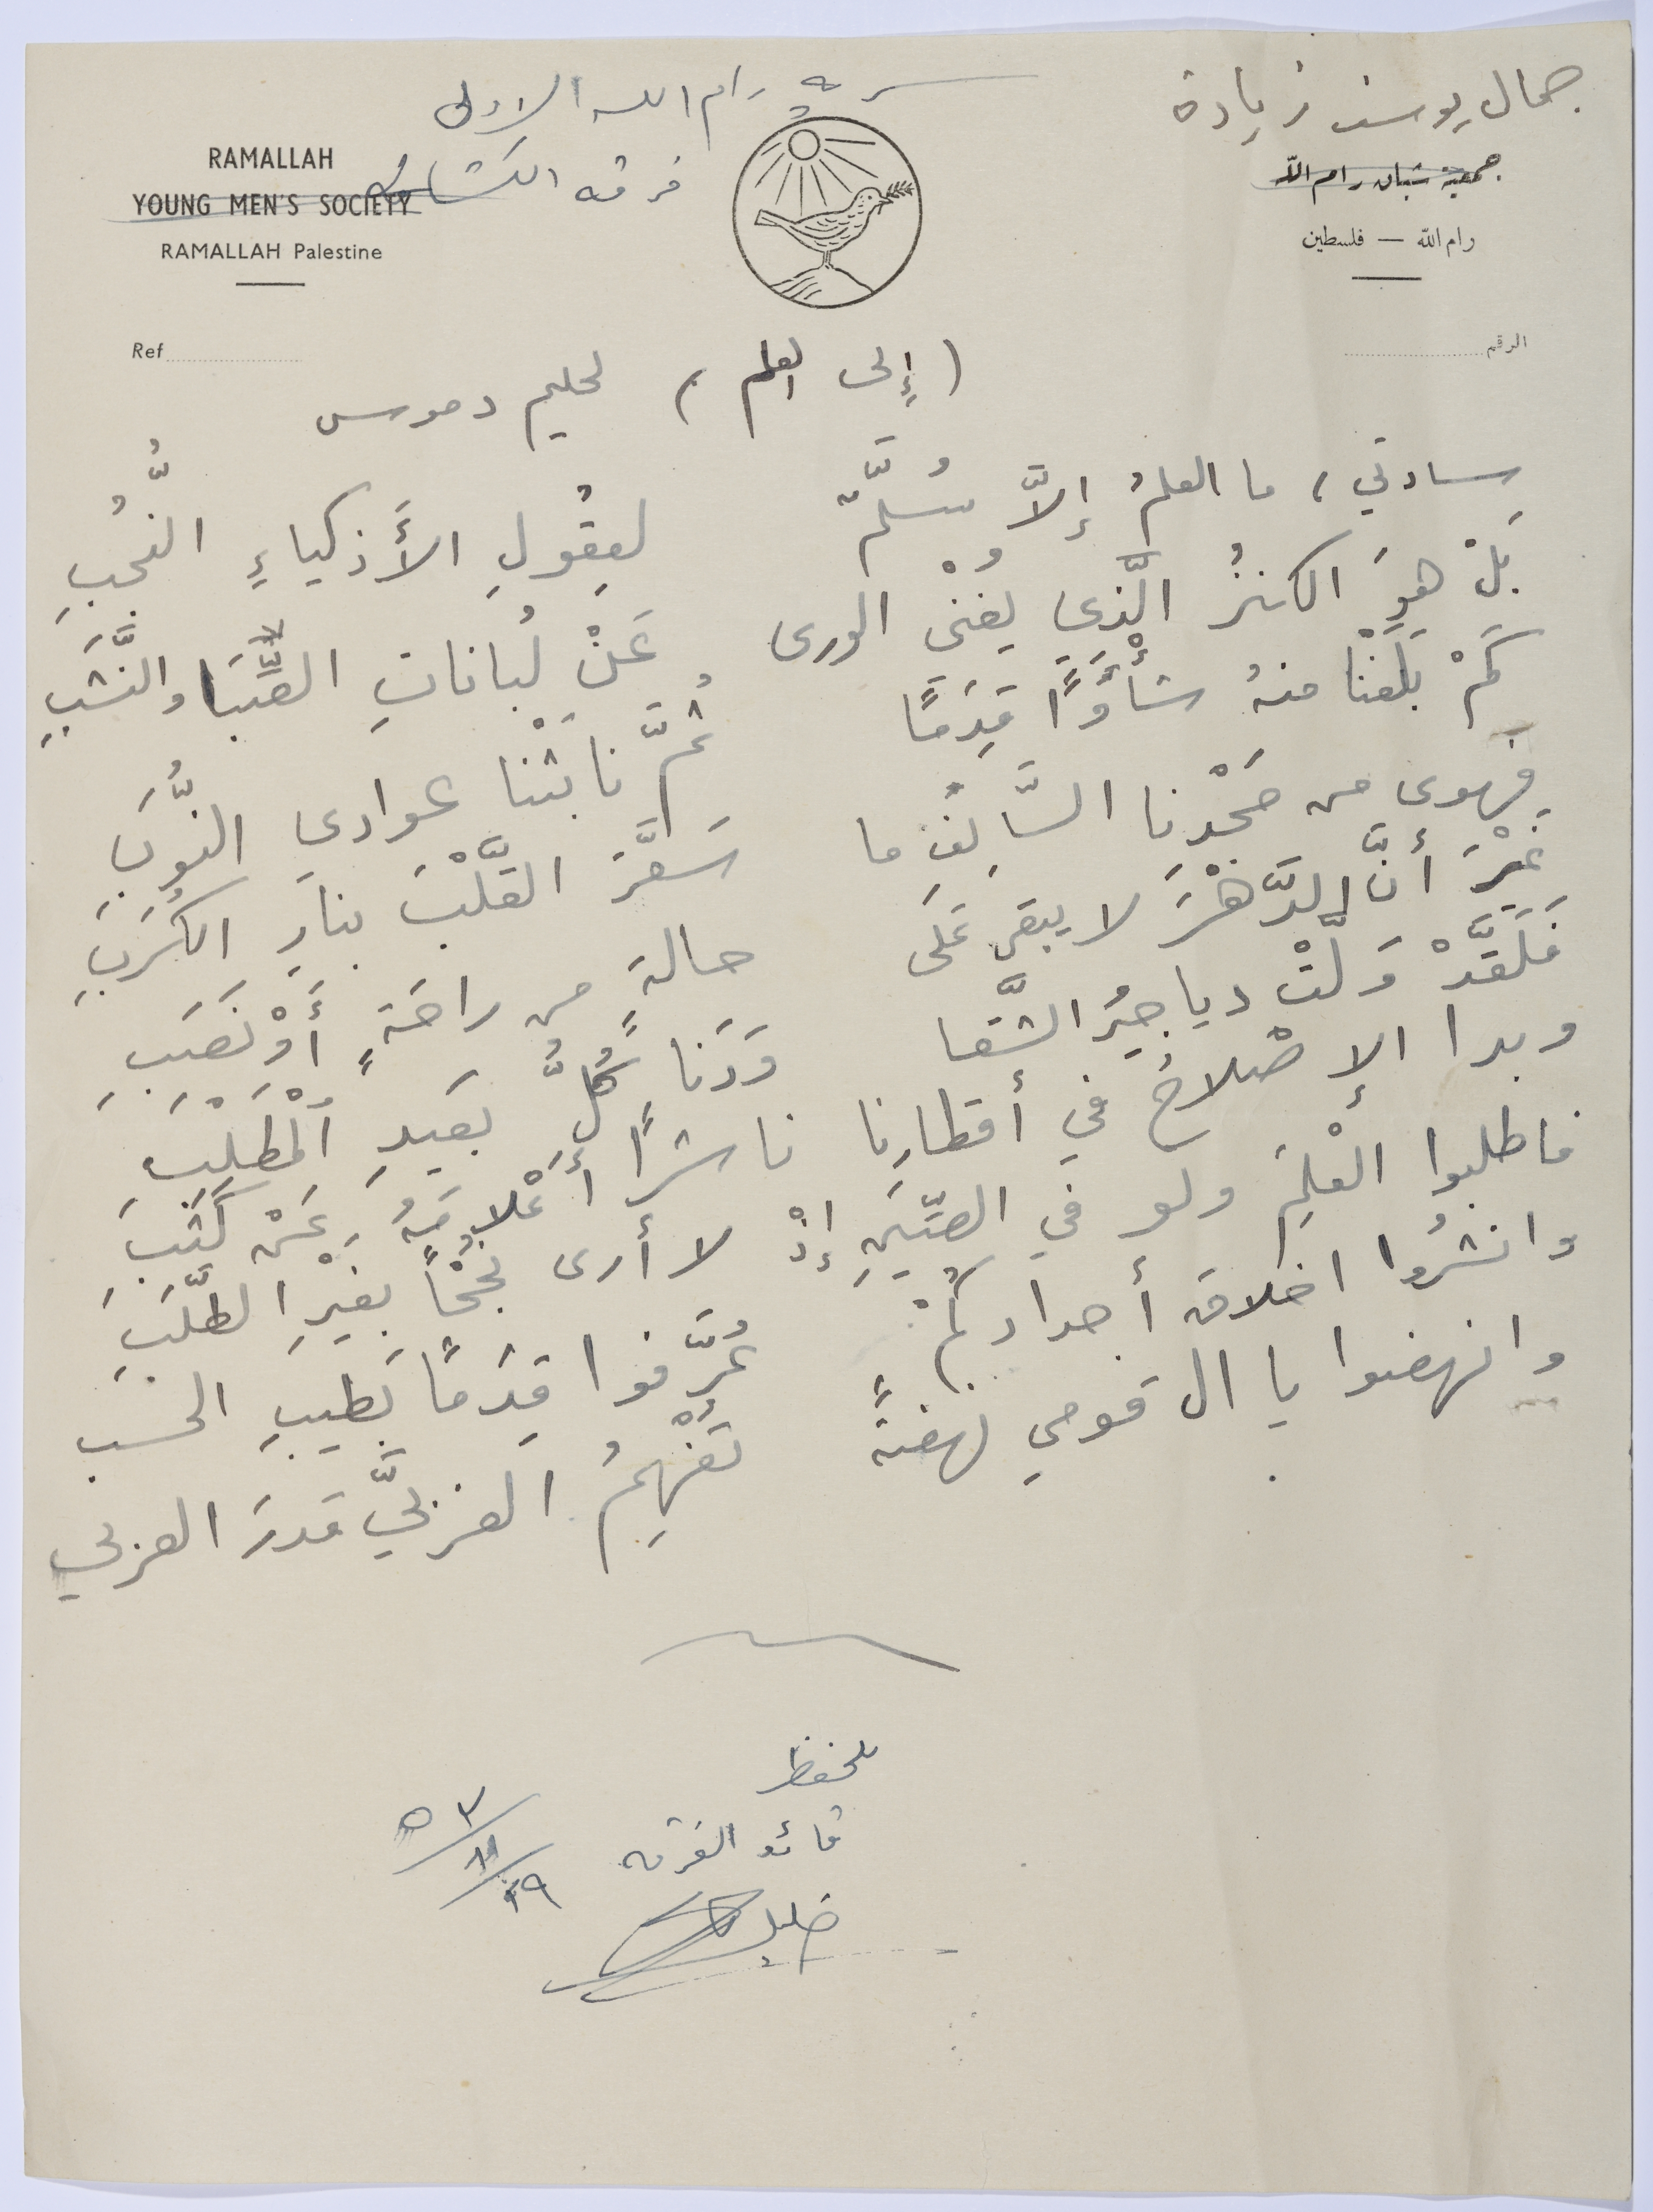 جمال يوسف زيادة
سرية رام الله الاولى
فرقة الكشافة
RAMALLAH
YOUNG MEN'S SOCIETY
RAMALLAH Palestine
جمعية شبان رام الله
رام الله — فلسطين
Ref
الرقم
(إلى العلم) لحليم دموس
سادتي، ما العلمُ إلاَّ سُلَّمٌ لعقُولِ الأَذكياءِ النُّجُبِ
بَلْ هوَ الكنزُ الَّذي يُغْني الورى عَنْ لُباناتِ الصِّبَا والنَّشَبِ
كَمْ بَلَغْنا منهُ شأْوًا قِدَمًا ثُمَّ نابَتْنا عوادي النُّوَبِ
فهوى من مَجْدِنا السَّالِفِ ما سَعَّرَ القَلْبَ بنارِ الكُرَبِ
غَيْرَ أنَّ الدَّهْرَ لا يبقى عَلَى حالةٍ من راحَةٍ أَوْ نَصَبِ
فَلَقَدْ وَلَّتْ دياجيرُ الشَّقا وَدَنا كُلُّ بَعيدِ اْلمَطْلَبِ
وبدا الإصْلاحُ في أقطارِنا ناشرًا أَعْلامَهُ عَنْ كَثَبِ
فاطلبوا الْعلِمَ ولو في الصِّينِ إذْ لا أرى نُجْحًا بغَيْرِ الطَّلَبِ
وانشُروا اخلاقَ أجدادِكُمْ عُرِّفوا قِدَمًا بَطيبِ الحسب
وانهضوا يا ال قومي نهضةً تُفْهِمُ الغربيَّ قدرَ العربي
للحفظ
قائد الفرقه
خليل
٥٣/١١/٢٩